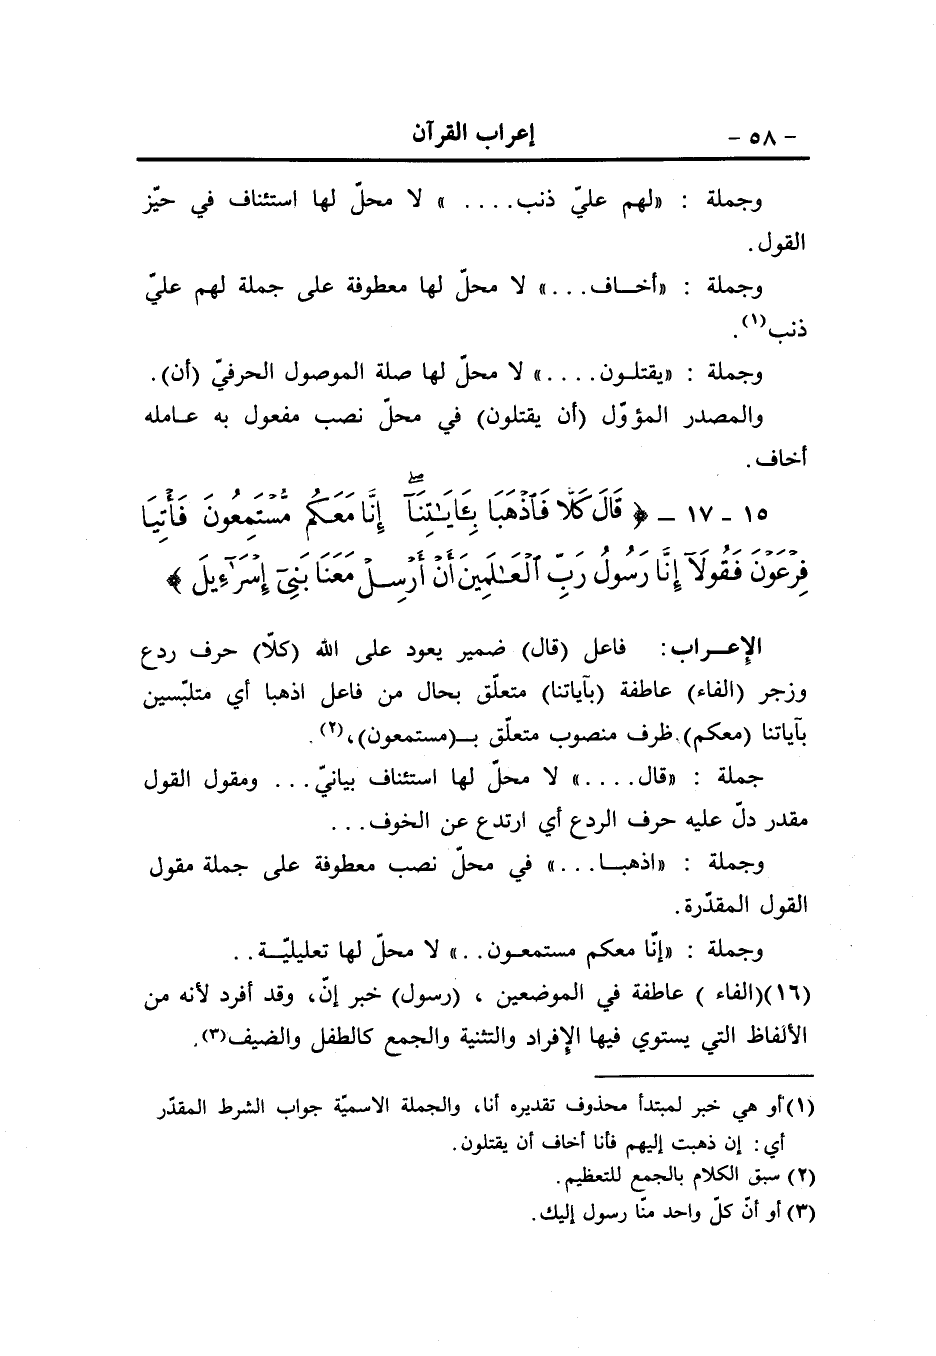 - ٥٨ - إعراب القرآن
وجملة : «لهم عليّ ذنب.... » لا محلّ لها استئناف في حيّز
القول.
وجملة : «أخـــاف...» لا محلّ لها معطوفة على جملة لهم عليّ
ذنب(١).
وجملة : «يقتلـون....» لا محلّ لها صلة الموصول الحرفيّ (أن).
والمصدر المؤوّل (أن يقتلون) في محلّ نصب مفعول به عـامله
أخاف.
١٥ - ١٧ - ﴿ قَالَ كَلَّا فَٱذْهَبَا بِـَٔايَـٰتِنَآ ۖ إِنَّا مَعَكُم مُّسْتَمِعُونَ فَأْتِيَا
فِرْعَوْنَ فَقُولَآ إِنَّا رَسُولُ رَبِّ ٱلْعَـٰلَمِينَ أَنْ أَرْسِـلْ مَعَنَا بَنِىٓ إِسْرَٰٓءِيلَ ﴾
الإعـــراب: فاعل (قال) ضمير يعود على الله (كلّا) حرف ردع
وزجر (الفاء) عاطفة (بآياتنا) متعلّق بحال من فاعل اذهبا أي متلبّسين
بآياتنا (معكم).ظرف منصوب متعلّق بــ(مستمعون)،(٢).
جملة : «قال....» لا محلّ لها استئناف بيانيّ... ومقول القول
مقدر دلّ عليه حرف الردع أي ارتدع عن الخوف...
وجملة : «اذهبـــا...» في محلّ نصب معطوفة على جملة مقول
القول المقدّرة.
وجملة : «إنّا معكم مستمعـون..» لا محلّ لها تعليليّـــة..
(١٦)(الفاء ) عاطفة في الموضعين ، (رسول) خبر إنّ، وقد أفرد لأنه من
الألفاظ التي يستوي فيها الإفراد والتثنية والجمع كالطفل والضيف(٣).
(١)أو هي خبر لمبتدأ محذوف تقديره أنا، والجملة الاسميّة جواب الشرط المقدّر
أي: إن ذهبت إليهم فأنا أخاف أن يقتلون.
(٢) سبق الكلام بالجمع للتعظيم.
(٣) أو أنّ كلّ واحد منّا رسول إليك.